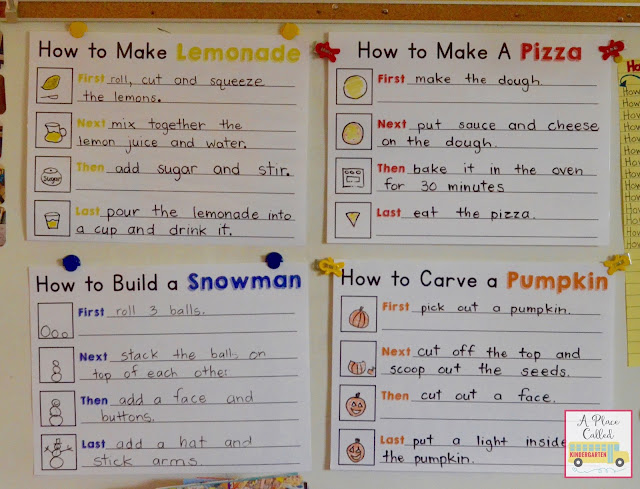 How to Make Lemonade
First roll, cut and squeeze
the lemons.
Next mix together the
lemon juice and water.
Then add sugar and stir.
Sugar
Last pour the lemonade into
a cup and drink it.
How to Make A Pizza
First make the dough.
Next put sauce and cheese
on the dough.
Then bake it in the oven
for 30 minutes
Last eat the pizza.
How to Build a Snowman
First roll 3 balls.
Next stack the balls on
top of each other
Then add a face and
buttons.
Last add a hat and
stick arms.
How to Carve a Pumpkin
First pick out a pumpkin.
Next cut off the top and
scoop out the seeds.
Then cut out a face.
Last put a light inside
the pumpkin.
Ho
How
How
How
How
How
How
How
How
How
How
A Place
Called
KINDERGARTEN